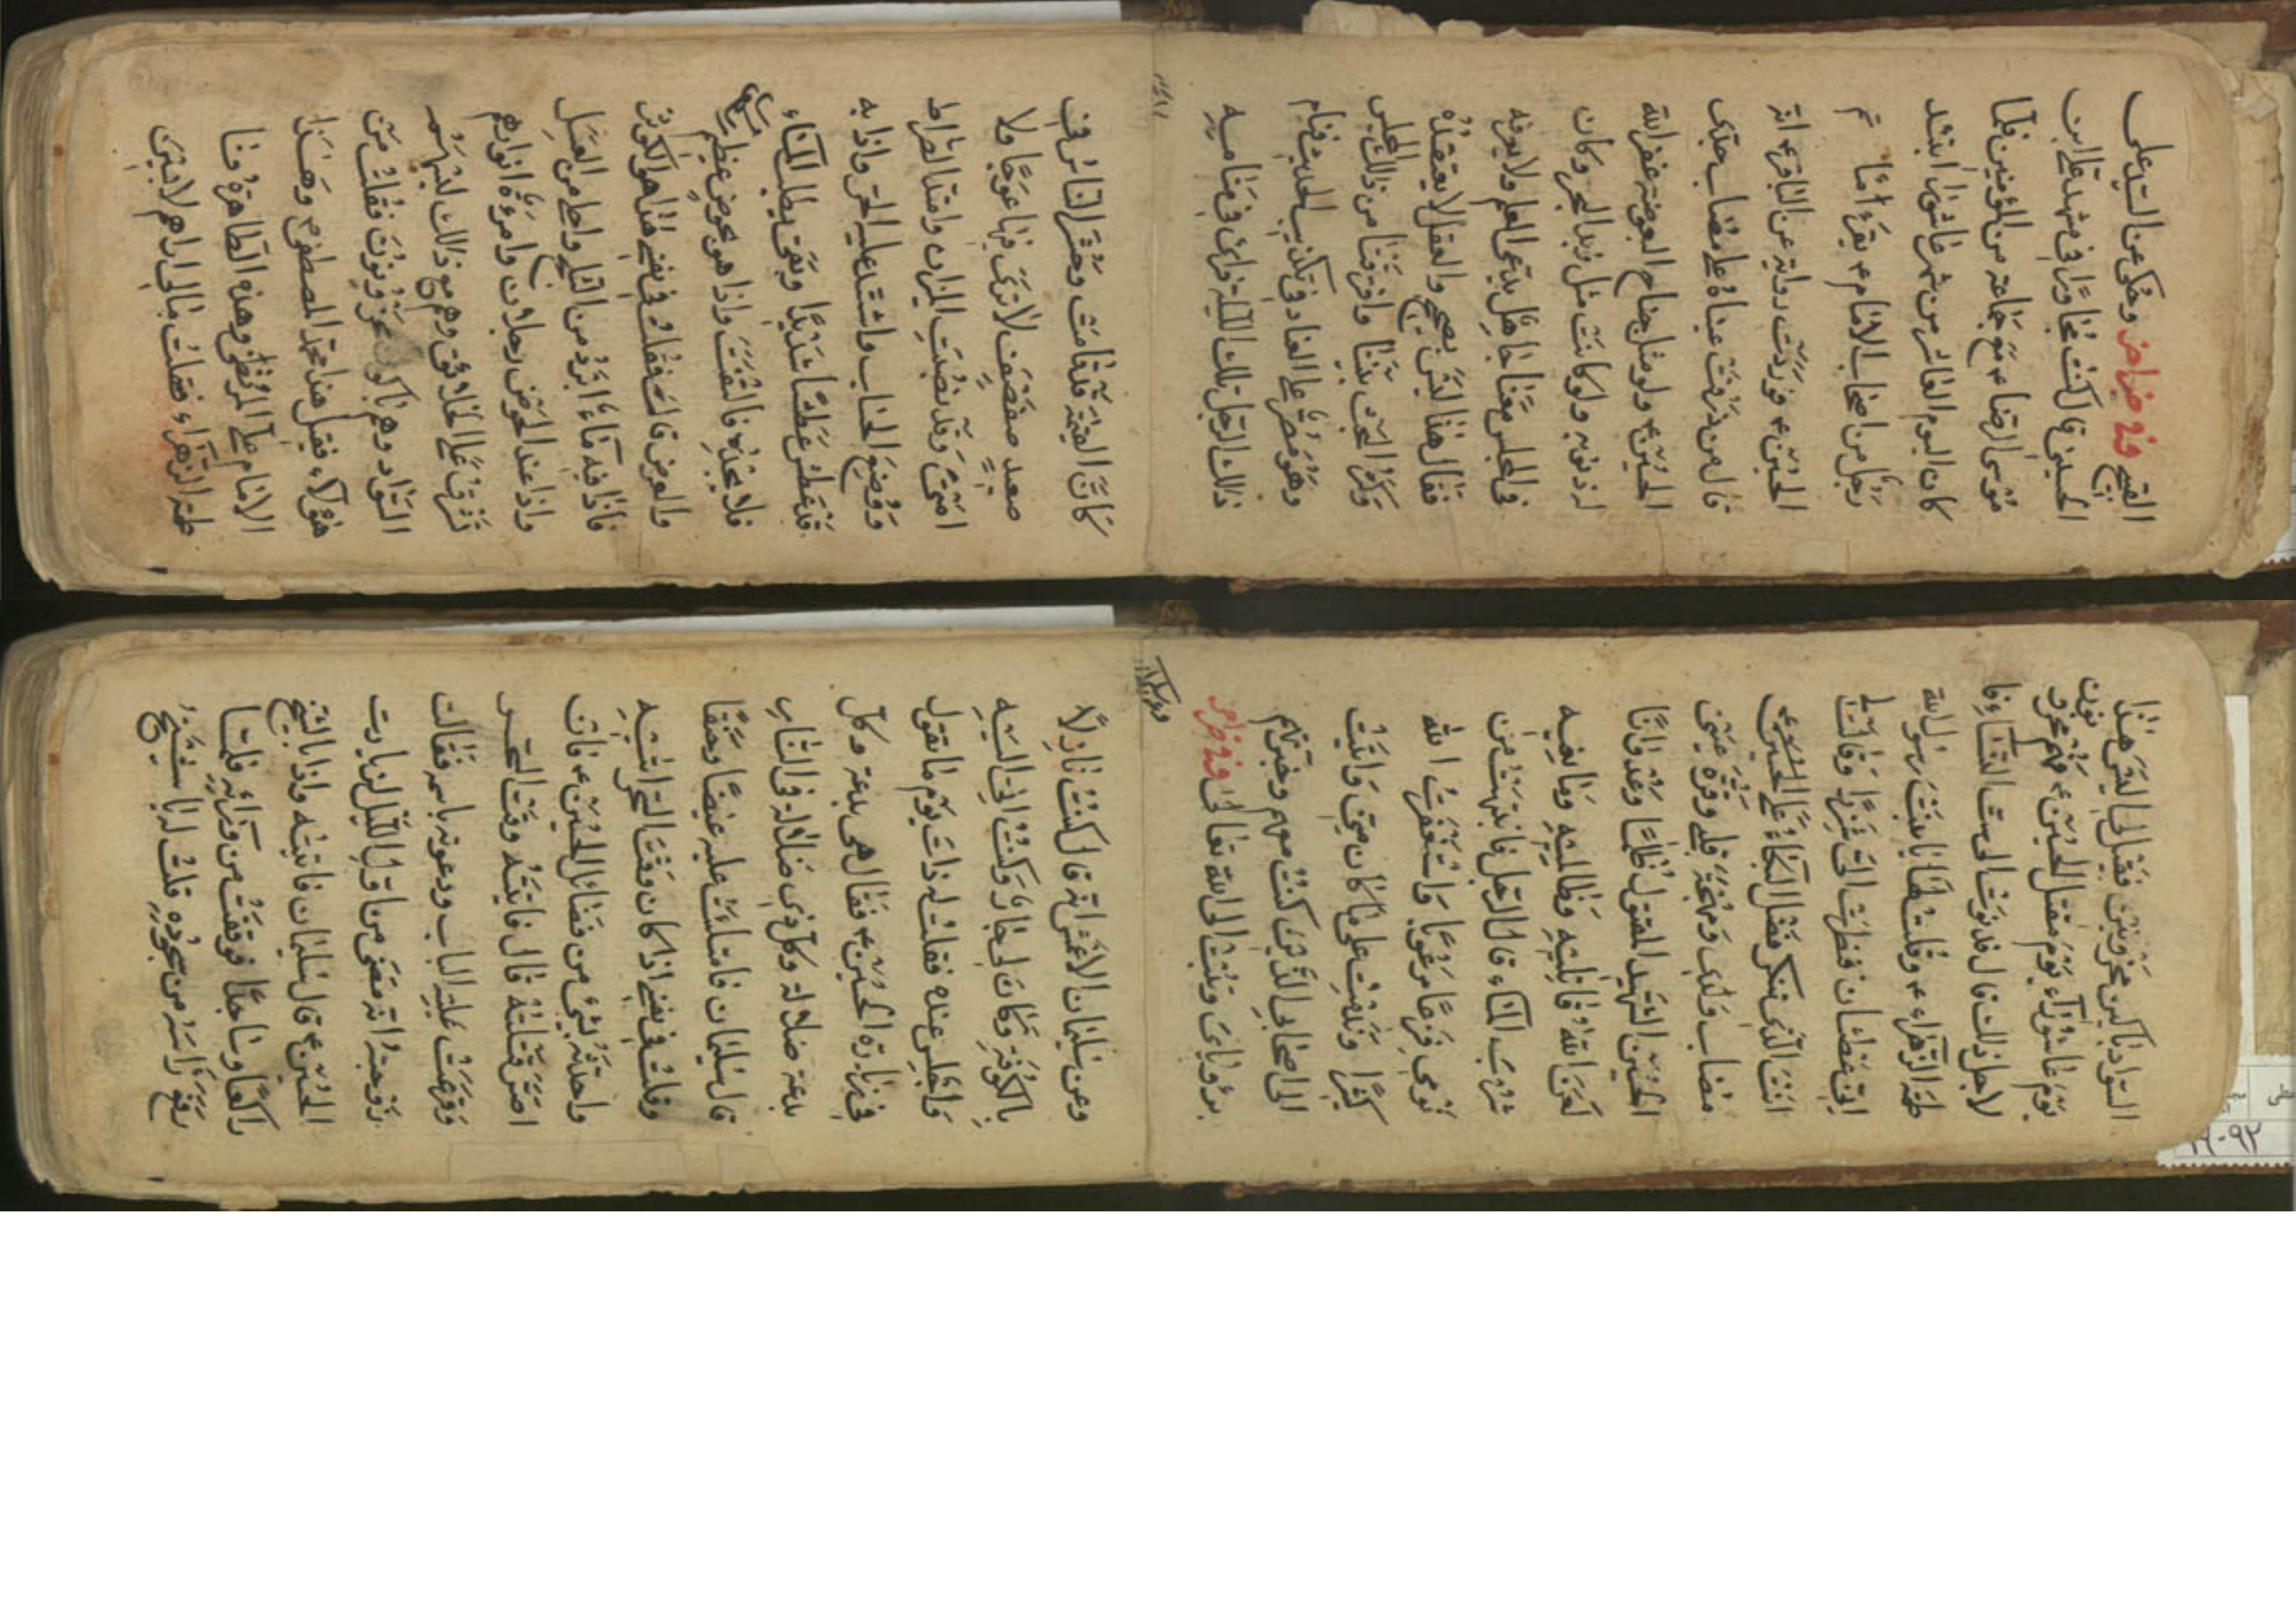 القبيح وفي خبر اخر وحكي عن السيد علي
الحسيني قال كنت مجاورا في مشهد علي ابن
موسى الرضا ء مع جماعة من المؤمنين فلما
كان اليوم العاشر من شهر عاشورا ابتدء
رجل من اصحاب الامام ء يقرء
الحسين ء فوردت رواية عن الباقر ء انه
قال من ذرفت عيناه على مصاب جدي
الحسين ء ولو مثل جناح البعوضة غفر الله
له ذنوبه ولو كانت مثل زبد البحر وكان
في المجلس معنا جاهل يدعي العلم ولا يعرفه
فقال هذا ليس بصحيح والعقل لا يعتقده
وكثر البحث بيننا وافترقنا من ذلك المجلس
وهو مصر على العناد في تكذيب الحديث فنام
ذلك الرجل تلك الليلة فراى في منامه
كان القيمة قد قامت وحشر الناس في
صعيد صفصف لا ترى فيها عوجا ولا
امتى وقد نصبت الميزان وامتد الصراط
ووضع الحساب واشتد عليه الحر واذا به
قد عطش عطشا شديدا وبقي يطلب الماء
فلا يجده فالتفت واذا هو بحوض عظيم
والعرض قال فقلت في نفسي هذا هو الكوثر
فاذا فيه ماء ابرد من الثلج واحلى من العسل
واذا عند الحوض رجلان وامرءة انوارهم
تشرق على الخلائق وهم مع ذلك لبسهم
السواد وهم باكون محزونون فقلت من
هؤلاء فقيل هذا محمد المصطفى وهذا
الامام علي المرتضى وهذه الطاهرة فا
طمة الزهراء فقلت مالي اراهم لابسين
السواد باكين محزونين فقيل لي اليس هذا
يوم عاشوراء يوم مقتل الحسين ء فهم محزونون
لاجل ذلك قال فدنوت الى ست النساء فا
طمة الزهراء ء وقلت لها يا بنت رسول الله
اني عطشان فنظرت الي شزرا وقالت لي
انت الذي تنكر فضل البكاء على الحسين ء
مصاب ولدي ومهجة قلبي وقرة عيني
الحسين الشهيد المقتول ظلما وعدوانا
لعن الله قاتليه وظالميه ومانعيه
شرب الماء قال الرجل فانتبهت من
نومي فزعا مرعوبا واستغفرت الله
كثيرا وندمت على ما كان مني واتيت
الى اصحابي الذين كنت معهم وخبرتهم
برؤياي وتبت الى الله تعالى وفي خبر اخر
وعن سليمان الاعمش انه قال كنت نازلا
بالكوفة وكان لي جار وكنت اتي اليه
واجلس عنده فقلت له ذات يوم ما تقول
في زيارة الحسين ء فقال هي بدعة وكل
بدعة ضلالة وكل ذي ضلالة في النار
قال سليمان فامتلئت عليه غيضا وحنقا
وقلت في نفسي اذا كان وقت السحر اتيته
واحدثه بشيء من فضائل الحسين ء فان
اصر قتلته قال فاتيته وقت السحر
وقرعت عليه الباب ودعوته باسمه فقالت
زوجته انه مضى من اول الليل لزيارت
الحسين ء قال سليمان فاتيته واذا بالشيخ
راكعا وساجدا فوقفت من ورائه فلما
رفع راسه من سجوده قلت له يا شيخ